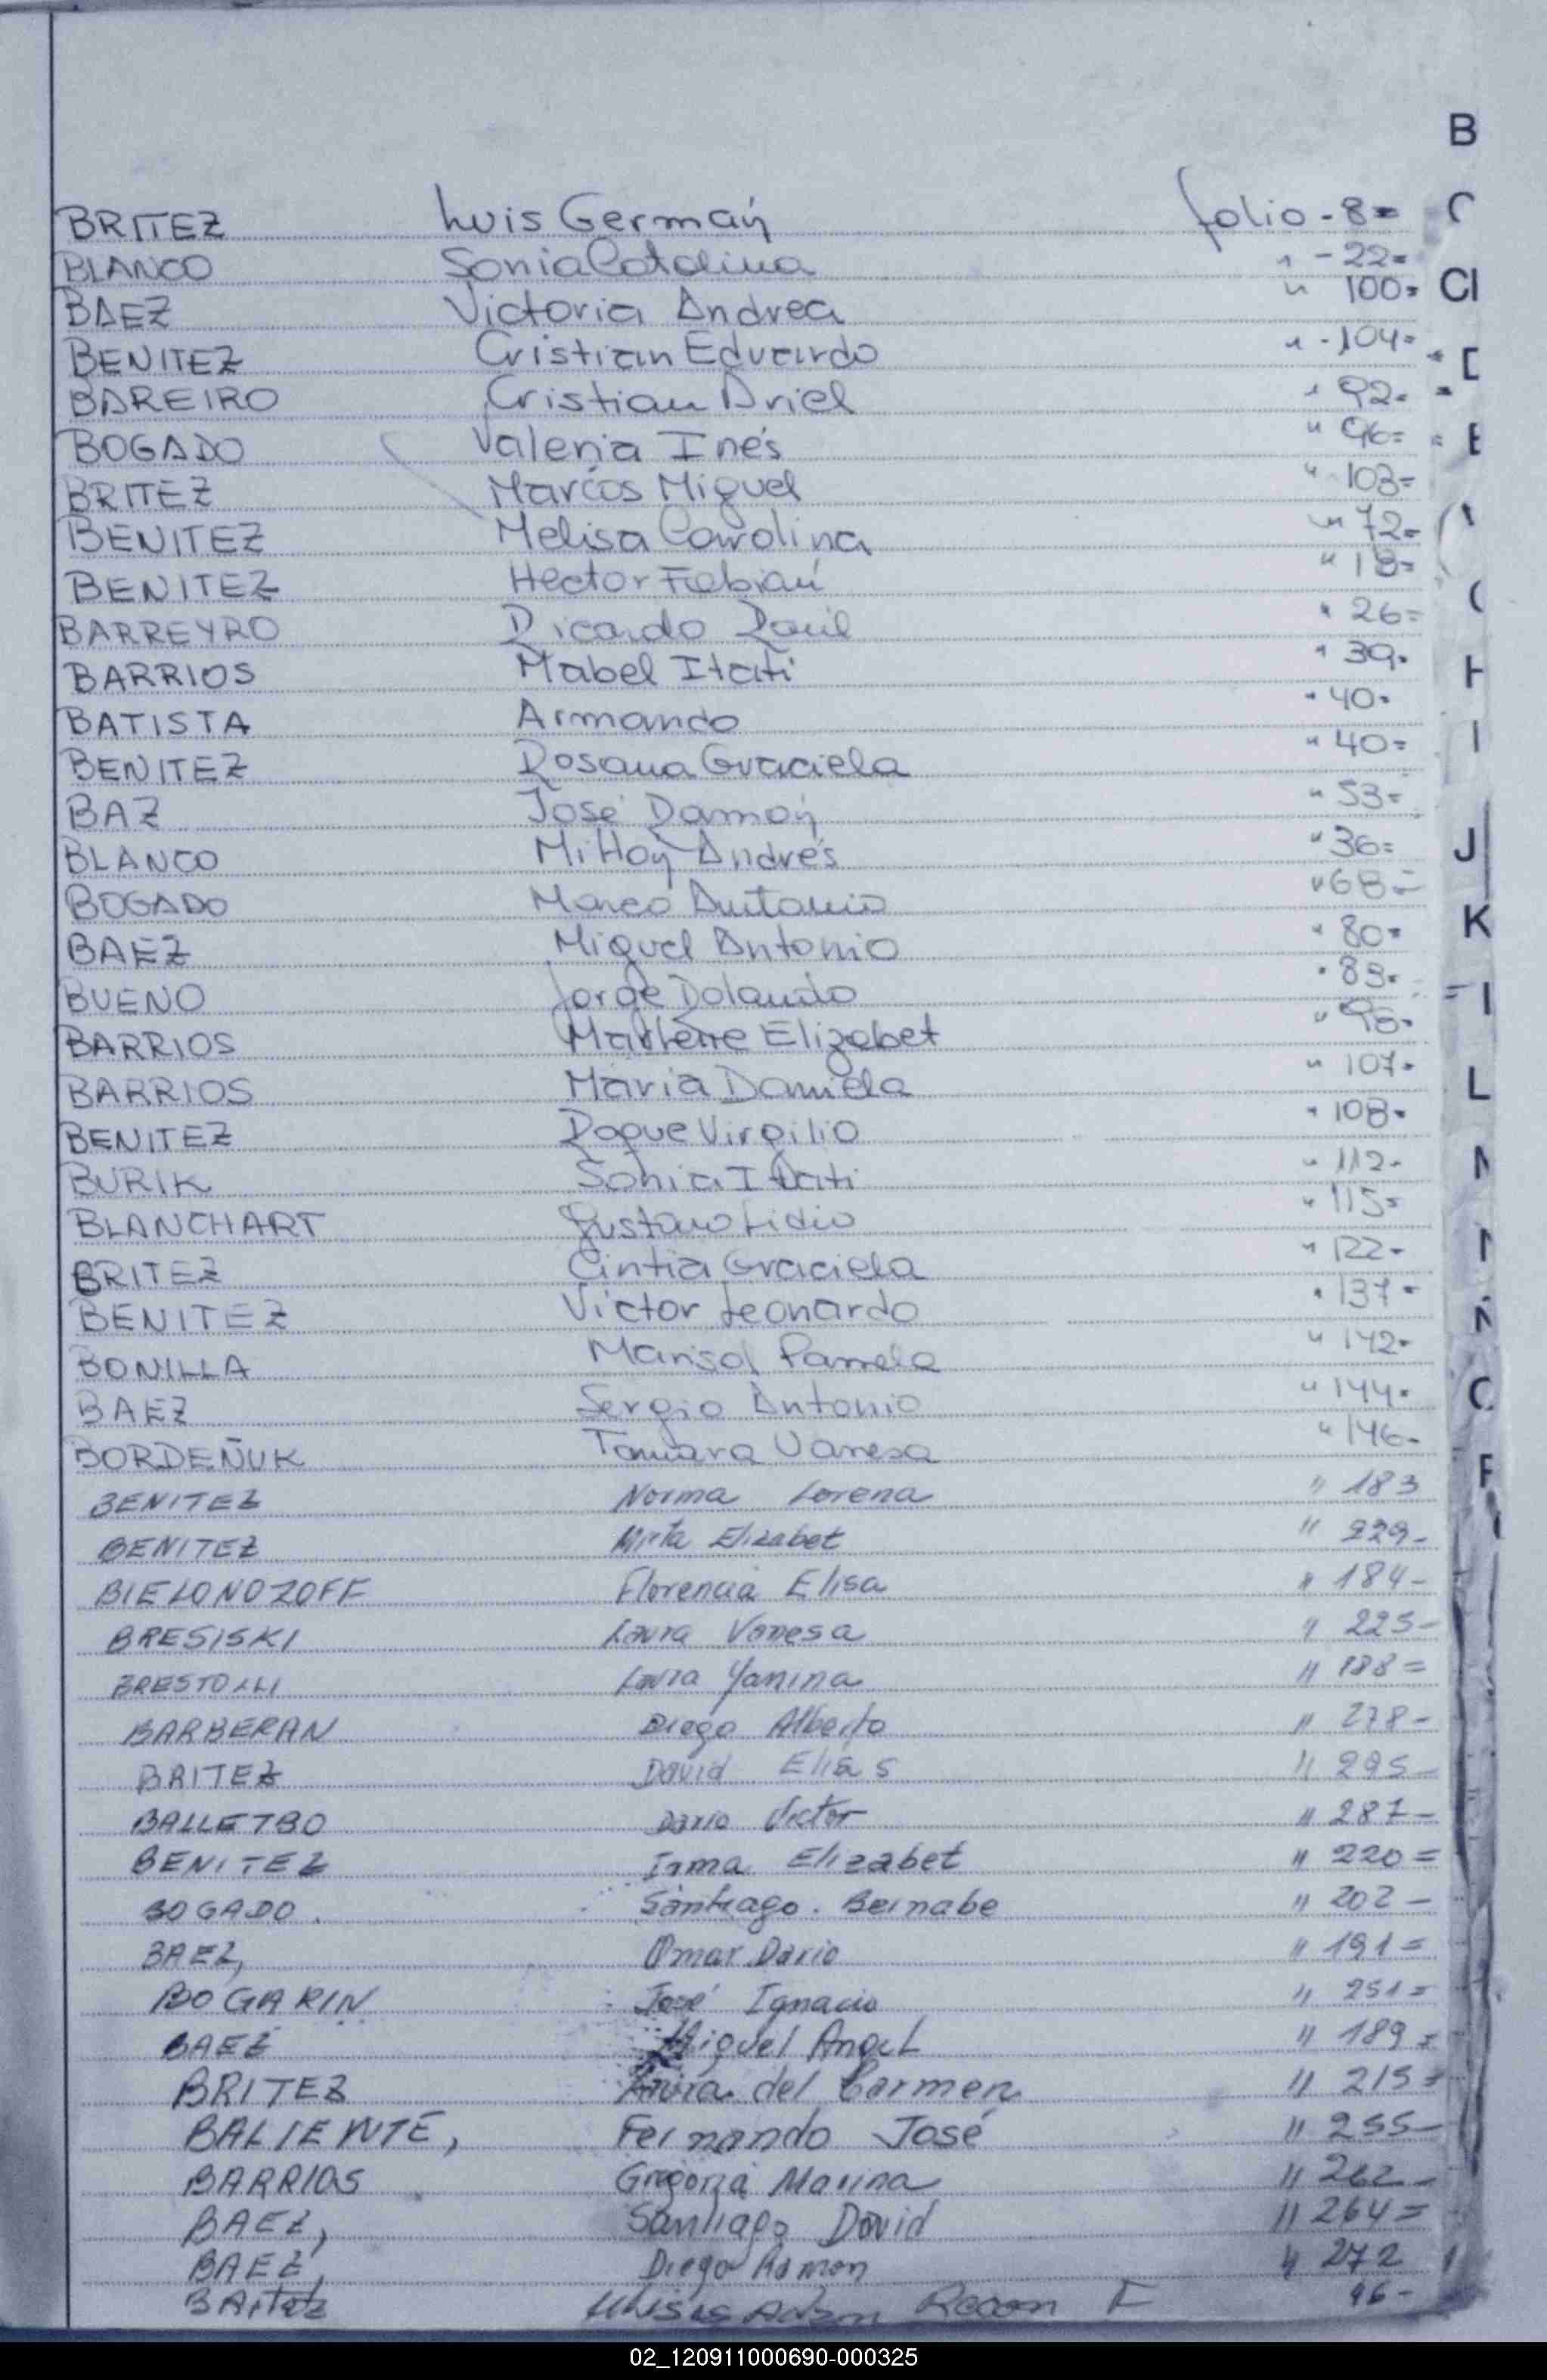 B
BRITEZ Luis Germań folio - 8=
C
BLANCO Sonia Catalina " - 22=
BAEZ Victoria Andrea " 100=
CI
BENITEZ Cristian Eduardo " - 104=
BAREIRO Cristian Ariel " 92=
BOGADO Valeria Inés " 96=
BRITEZ Marcos Miguel " 103=
BENITEZ Melisa Carolina " 72=
BENITEZ Hector Fabián " 18=
BARREYRO Ricardo Raúl " 26=
BARRIOS Mabel Itati " 39=
H
BATISTA Armando " 40=
BENITEZ Rosana Graciela " 40=
I
BAZ José Damań " 53=
BLANCO Milton Andrés " 36=
J
BOGADO Marco Antonio " 68=
BAEZ Miguel Antonio " 80=
K
BUENO Jorge Rolando " 83=
BARRIOS Marlene Elizabet "
BARRIOS Maria Daniela " 107=
L
BENITEZ Roque Virgilio " 108=
BURIK Sonia Itati " 112=
BLANCHART Gustavo Lidio " 115=
BRITEZ Cintia Graciela " 122=
BENITEZ Victor Leonardo " 137=
BONILLA Marisol Pamela " 142=
BAEZ Sergio Antonio " 144=
BORDEÑUK Tamara Vanesa " 146=
BENITEZ Norma Lorena " 183
BENITEZ Mirta Elizabet " 229-
BIELONOZOFF Florencia Elisa " 184-
BRESISKI Laura Vanesa " 225-
Laura Yanina " 188=
BARBERAN Diego Alberto " 278-
BRITEZ David Elias " 295-
BALLETBO Dario Victor " 287-
BENITEZ Irma Elizabet " 220=
BOGADO. Santiago. Bernabe " 202-
BAEZ, Omar Dario " 191=
BOGARIN José Ignacio " 251=
BAEZ Miguel Angel " 189=
BRITEZ del Carmen " 215=
BALIENTE, Fernando José " 255-
BARRIOS Gregoria Marina " 262-
BAEZ, Santiago David " 264=
BAEZ, Diego Ramon " 272
Britez Ulises 96-
02_120911000690-000325